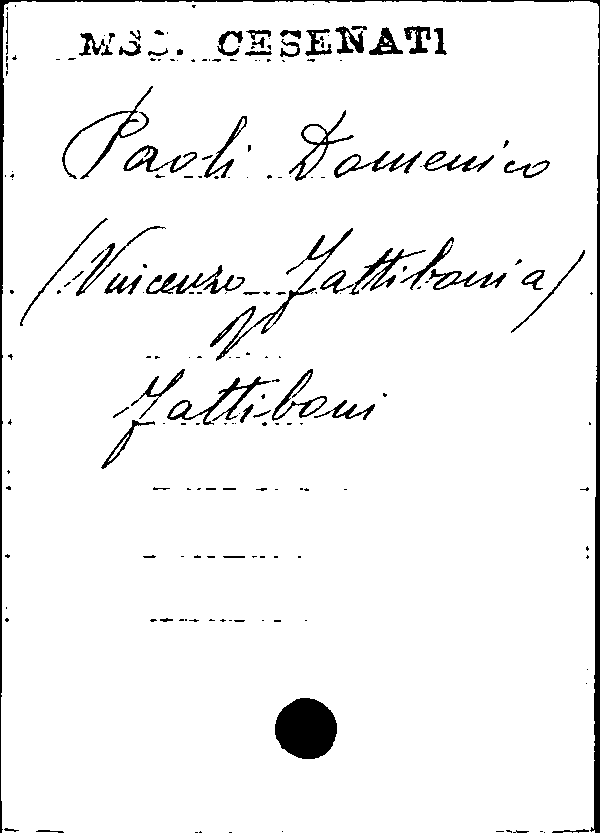 MSS. CESENATI
Paoli Domenico
(Vincenzo Fattiboni a)
V
Fattiboni